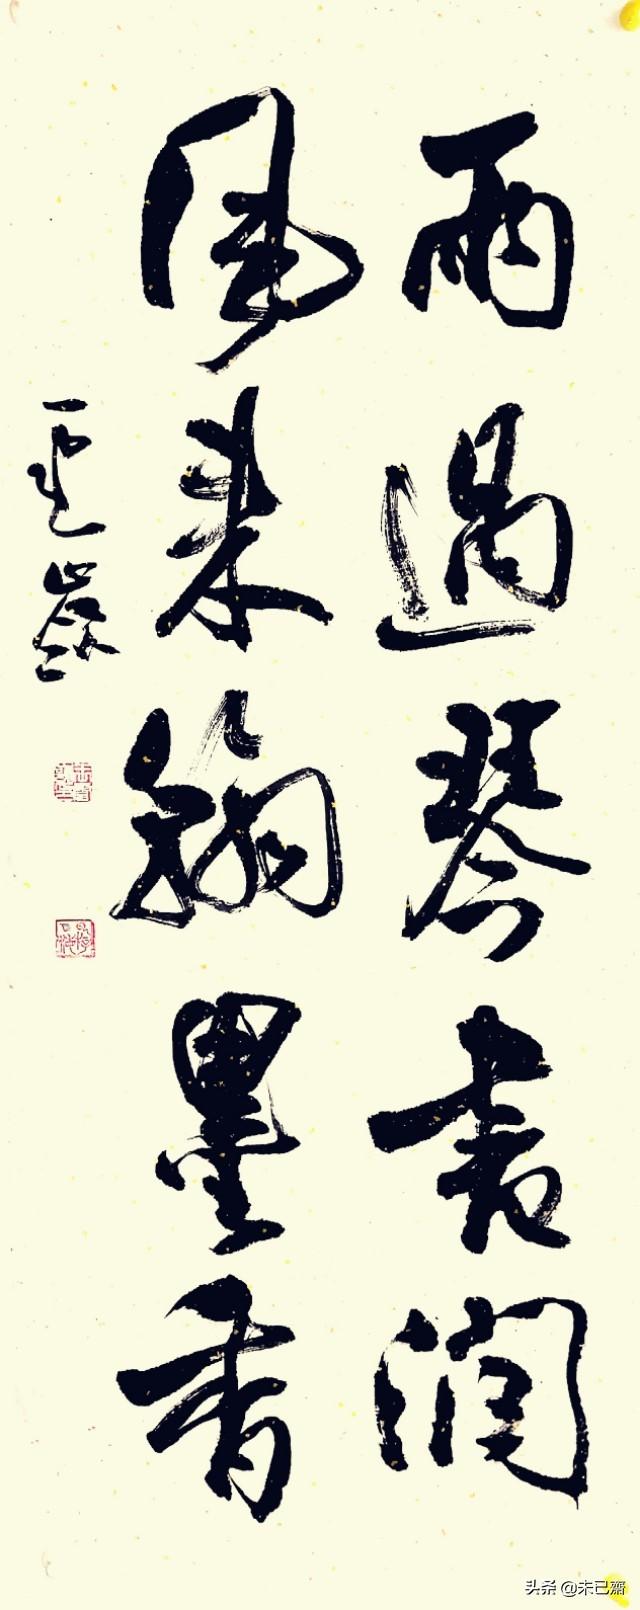 雨過琴書潤
風来翰墨香
头条 @未已齋